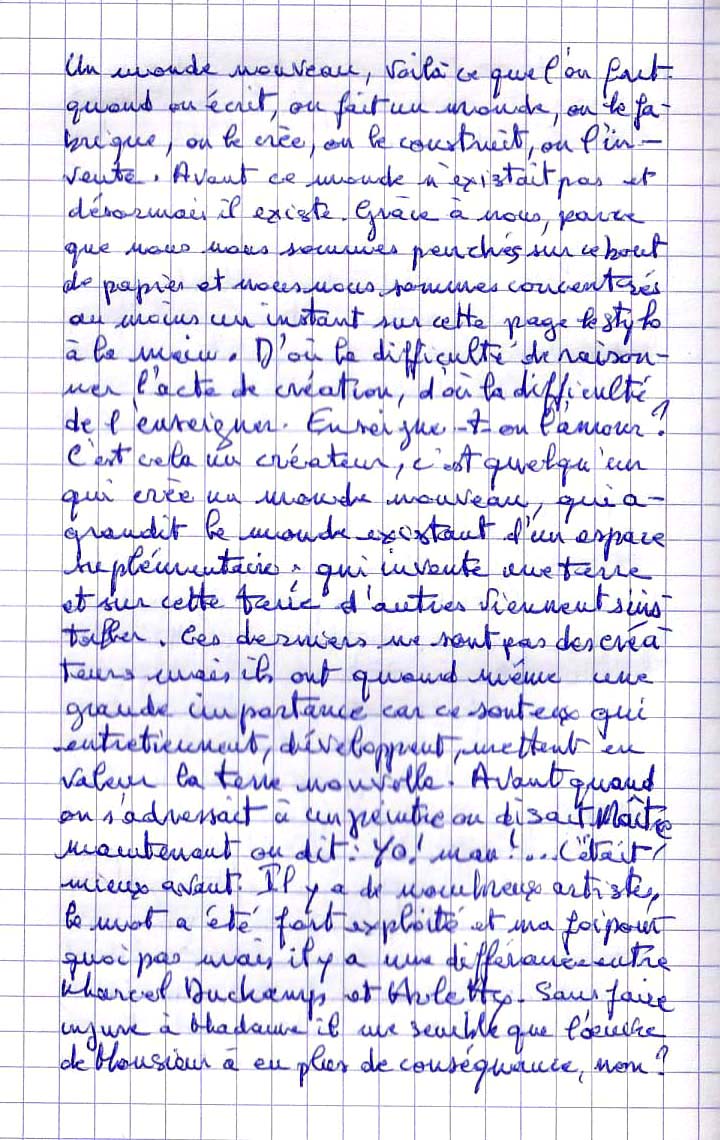 Un monde nouveau, voilà ce que l'on fait
quand on écrit, on fait un monde, on le fa-
brique, on le crée, on le construit, on l'in-
vente. Avant ce monde n'existait pas et
désormais il existe. Grâce à nous, parce
que nous nous sommes penchés sur ce bout
de papier et nous nous sommes concentrés
au moins un instant sur cette page le stylo
à la main. D'où la difficulté de raison-
ner l'acte de création, d'où la difficulté
de l'enseigner. Enseigne-t-on l'amour?
C'est cela un créateur, c'est quelqu'un
qui crée un monde nouveau, qui a-
grandit le monde existant d'un espace
suplémentaire, qui invente une terre
et sur cette terre d'autres viennent s'ins-
taller. Ces derniers ne sont pas des créa-
teurs mais ils ont quand même une
grande importance car ce sont eux qui
entretiennent, développent, mettent en
valeur la terre nouvelle. Avant quand
on s'adressait à un peintre on disait Maître
maintenant on dit: Yo! man!... C'était
mieux avant. Il y a de nombreux artistes,
le mot a été fort exploité et ma foi pour
quoi pas mais il y a une différance entre
Marcel Duchamp et Arletty. Sans faire
injure à Madame il me semble que l'oeuvre
de Monsieur à eu plus de conséquence, non?